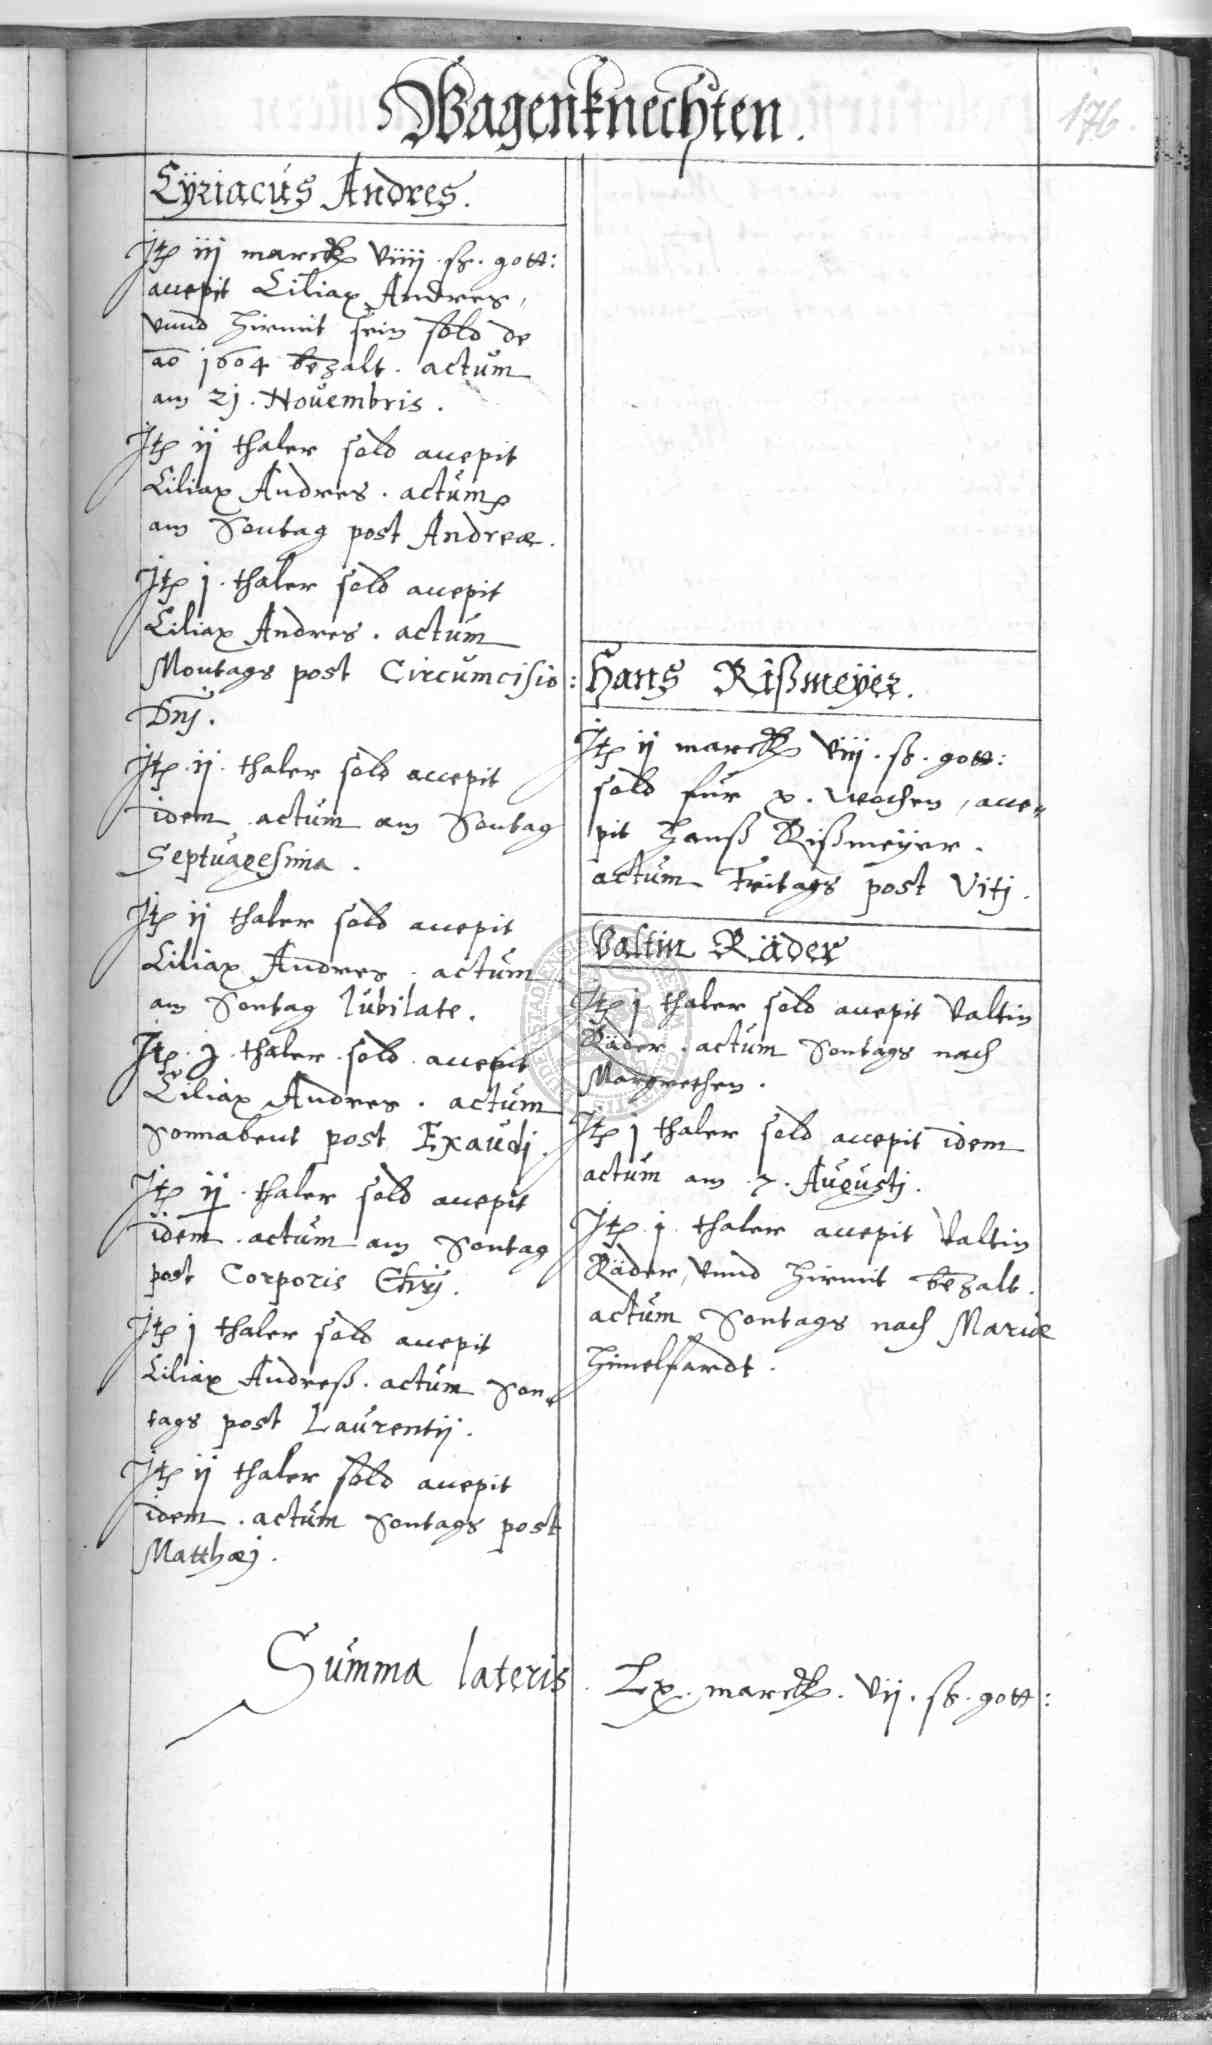 Wagenknechten.
176.
Cÿriacus Andres.
Itē iij marck viiij ß. gott:
accepit Ciliax Andres,
vnnd hirmit sein sold de
ao 1604 bezalt. actum
am 21. Nouembris.
Itē ij thaler sold accepit
Ciliax Andres. actum
am Sontag post Andreæ.
Itē j. thaler sold accepit
Ciliax Andres. actum
Montags post Circumcisio:
Dnj.
Itē. ij. thaler sold accepit
idem actum am Sontag
Septuagesima.
Itē ij thaler sold accepit
Ciliax Andres. actum
am Sontag Iubilate.
Itē. j. thaler sold accepit
Ciliax Andres. actum
Sonnabent post Exaudj.
Itē ij. thaler sold accepit
idem. actum am Sontag
post Corporis Chrj.
Itē j thaler sold accepit
Ciliax Andreß. actum Son-
tags post Laurentij.
Itē ij thaler sold accepit
idem. actum Sontags post
Matthæj.
Hans Rißmeÿer.
Itē ij marck viij. ß. gott:
sold für x. wochen, acce-
pit Hanß Rißmeÿer.
actum Freitags post Vitj.
Valtin Räder
Itē j thaler sold accepit Valtin
Räder. actum Sontags nach
Margrethen.
Itē j thaler sold accepit idem
actum am 7. Augustj.
Itē. j. thaler accepit Valtin
Räder, vnnd hirmit bezalt.
actum Sontags nach Mariæ
himelfardt.
Summa lateris. Lx. marck. vij. ß. gott: